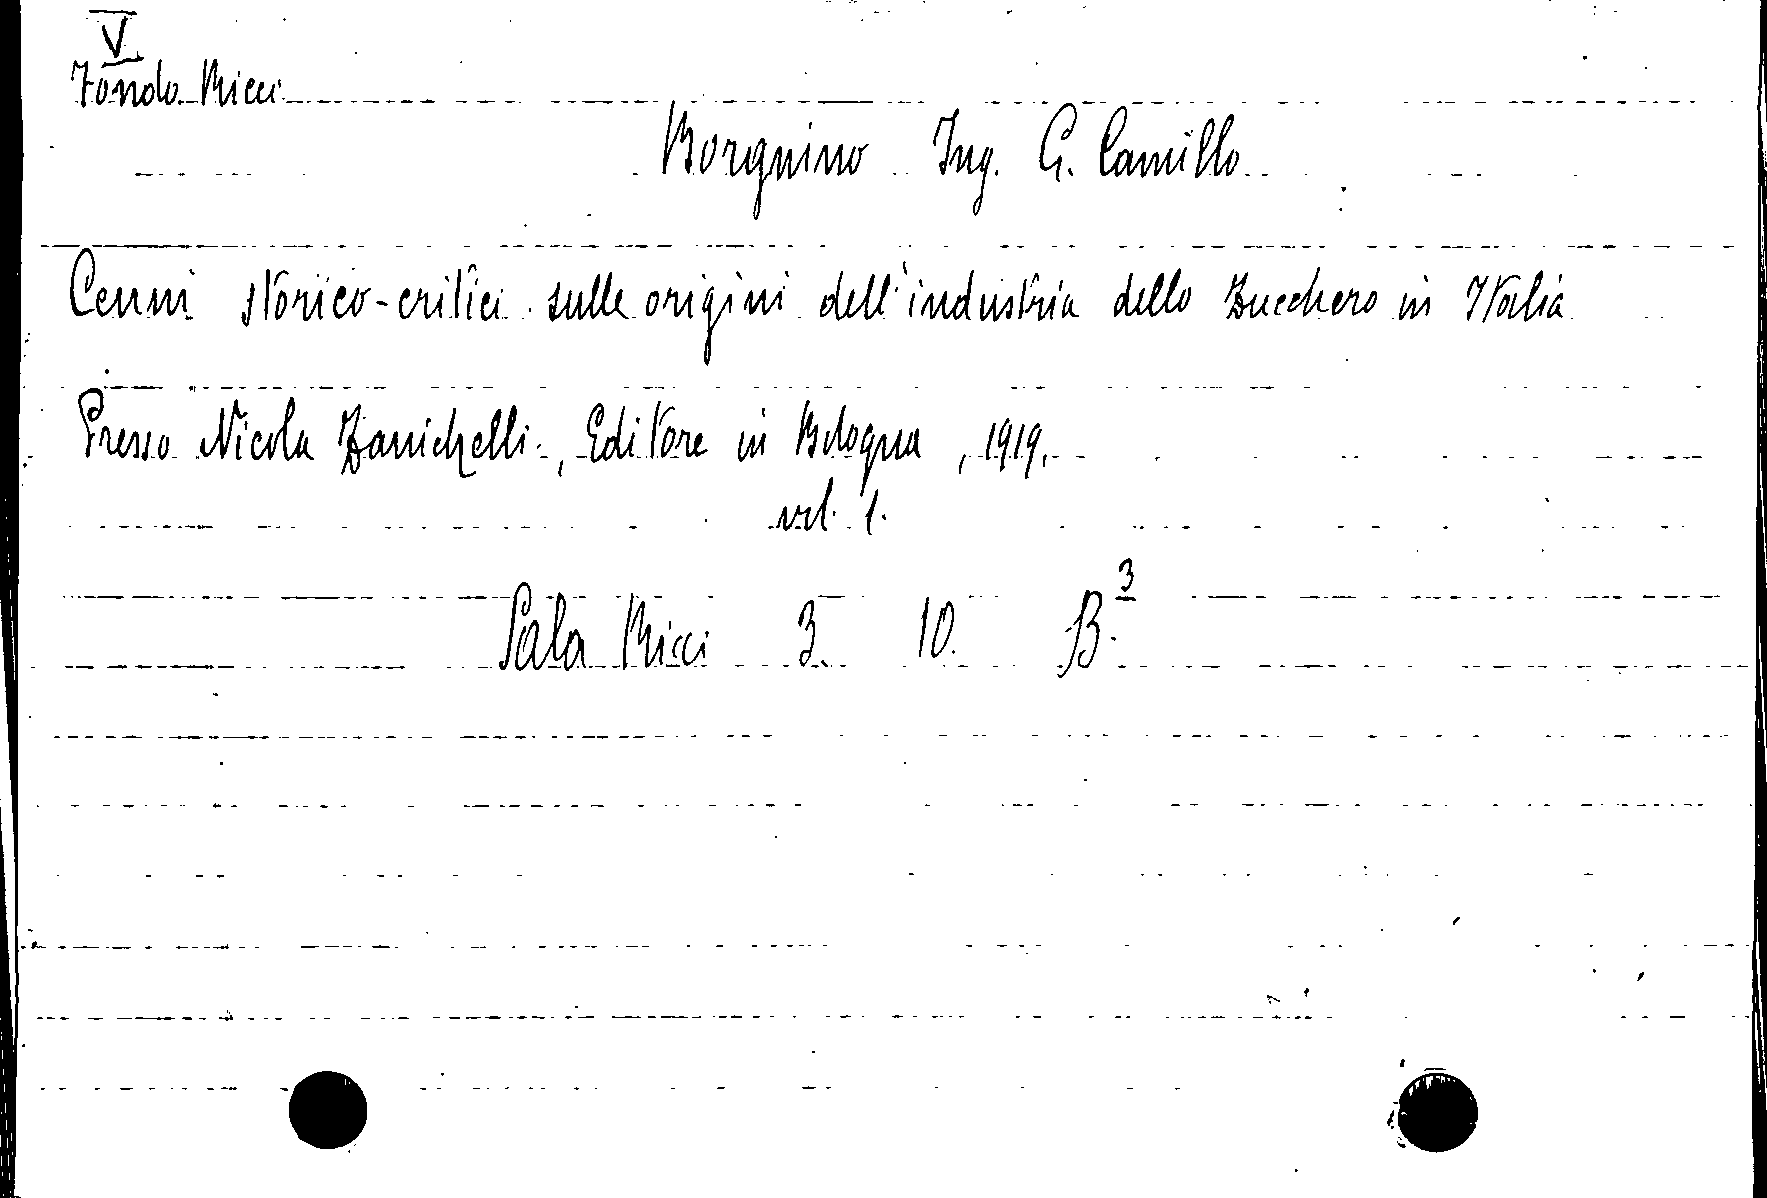 V
Fondo Ricci
Borgnino Ing. G. Camillo
Cenni storico-critici sulle origini dell'industria dello Zucchero in Italia
Presso Nicola Zanichelli, Editore in Bologna, 1919.
vol. 1.
Sala Ricci 3. 10. B.3